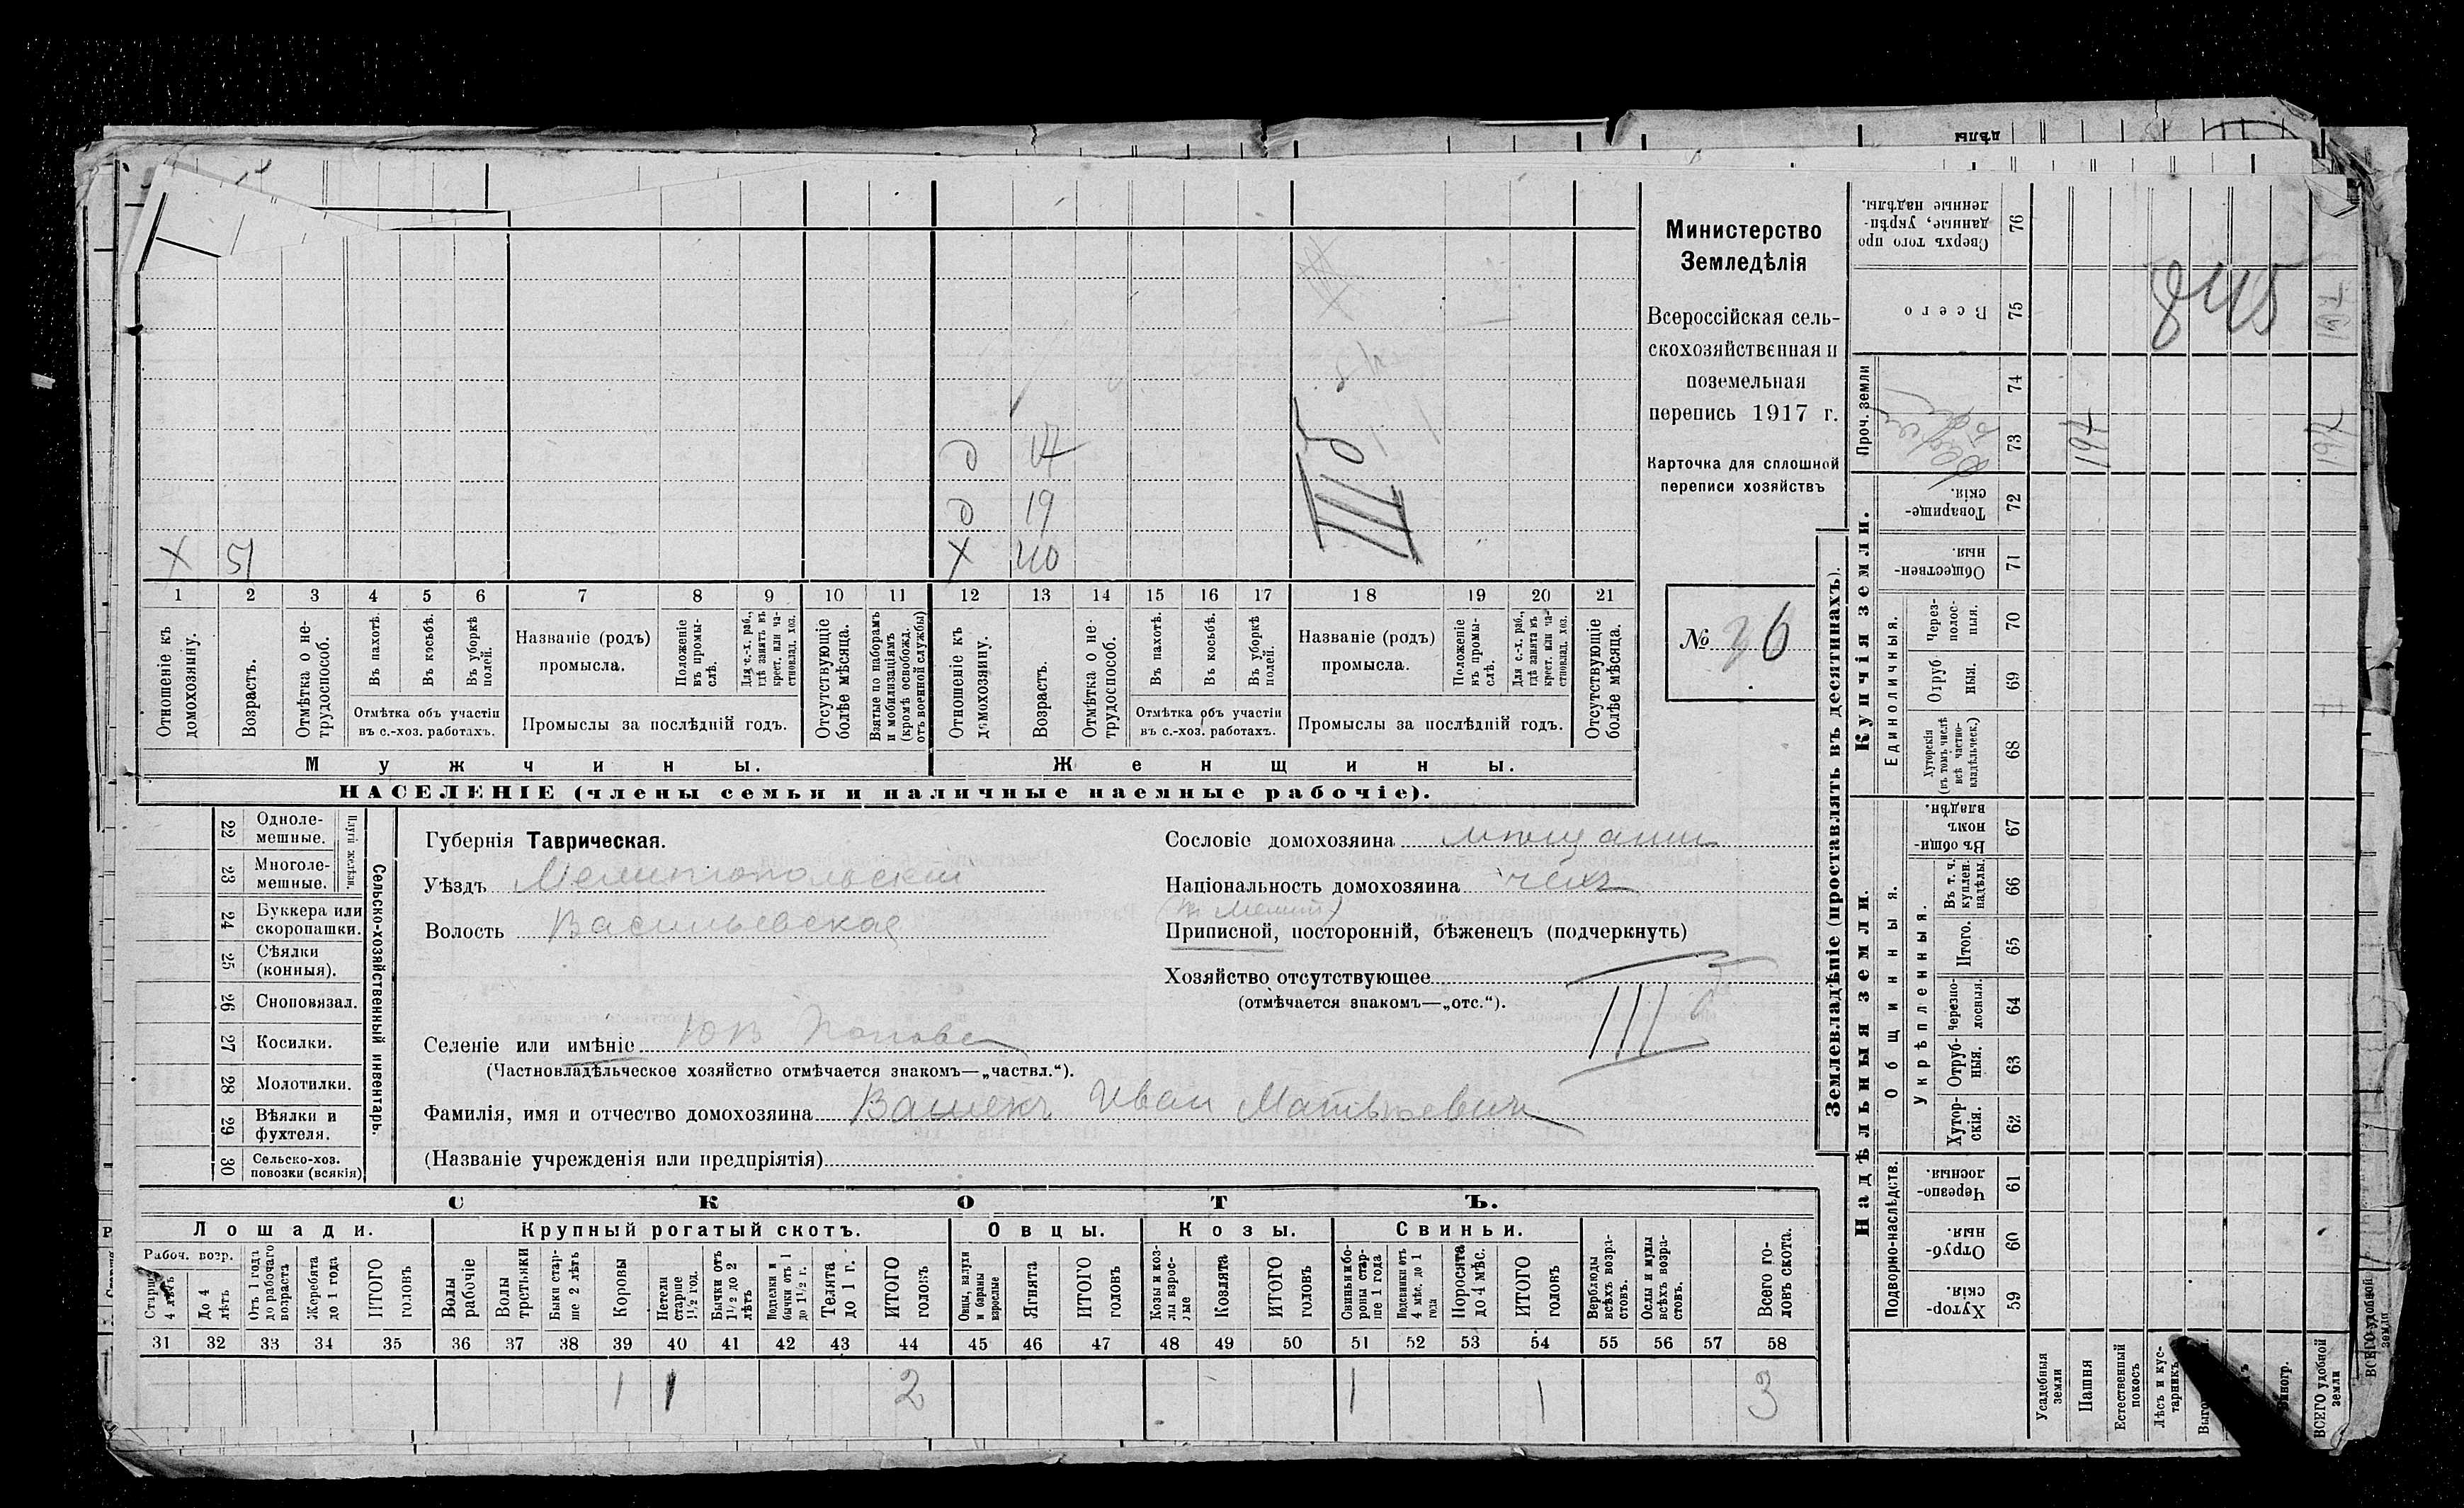 Министерство
Земледѣлія
Всероссійская сель-
скохозяйственная и
поземельная
перепись 1917 г.
Карточка для сплошной
переписи хозяйствъ
№ 36
д 17
д 19
х 51
х 40
III б
1 2 3 4 5 6 7 8 9 10 11 12 13 14 15 16 17 18 19 20 21
Отношеніе къ домохозяину.
Возрастъ.
Отмѣтка о не-трудоспособ.
Въ пахотѣ.
Въ косьбѣ.
Въ уборкѣ полей.
Отмѣтка объ участіи
въ с.-хоз. работахъ.
Названіе (родъ)
промысла.
Положеніе въ промы-слѣ.
Для с.-х. раб., гдѣ занятъ въ крест. или ча-стновлад. хоз.
Промыслы за послѣдній годъ.
Отсутствующіе болѣе мѣсяца.
Взятые по наборамъ и мобилизаціямъ (кромѣ освобожд. отъ военной службы)
Отношеніе къ домохозяину.
Возрастъ.
Отмѣтка о не-трудоспособ.
Въ пахотѣ.
Въ косьбѣ.
Въ уборкѣ полей.
Отмѣтка объ участіи
въ с.-хоз. работахъ.
Названіе (родъ)
промысла.
Положеніе въ промы-слѣ.
Для с.-х. раб., гдѣ занята въ крест. или ча-стновлад. хоз.
Промыслы за послѣдній годъ.
Отсутствующіе болѣе мѣсяца.
Мужчины.
Женщины.
НАСЕЛЕНІЕ (члены семьи и наличные наемные рабочіе).
22 Одноле-мешные.
23 Многоле-мешные.
Плуги желѣзн.
24 Буккера или скоропашки.
25 Сѣялки (конныя).
26 Сноповязал.
27 Косилки.
28 Молотилки.
29 Вѣялки и фухтеля.
30 Сельско-хоз. повозки (всякія)
Сельско-хозяйственный инвентарь.
Губернія Таврическая.
Уѣздъ Мелитопольскій
Волость Васильевская
Селеніе или имѣніе Попова
(Частновладѣльческое хозяйство отмѣчается знакомъ—„частвл.“).
Фамилія, имя и отчество домохозяина Вашекъ Иван Матвѣевич
(Названіе учрежденія или предпріятія)
Сословіе домохозяина мѣщанин
Національность домохозяина чехъ
Приписной, посторонній, бѣженецъ (подчеркнуть)
Хозяйство отсутствующее
(отмѣчается знакомъ—„отс.“).
III б
СКОТЪ.
Лошади. Крупный рогатый скотъ. Овцы. Козы. Свиньи.
Рабоч. возр.
Старше 4 лѣтъ
До 4 лѣтъ
Отъ 1 года до рабочаго возраста
Жеребята до 1 года
ИТОГО головъ
Волы рабочіе
Волы третьяки
Быки стар-ше 2 лѣтъ
Коровы
Нетели старше 1½ год.
Бычки отъ 1½ до 2 лѣтъ
Подтелки и бычки отъ 1 до 1½ г.
Телята до 1 г.
ИТОГО головъ
Овцы, валухи и бараны взрослые
Ягнята
ИТОГО головъ
Козы и коз-лы взрос-лые
Козлята
ИТОГО головъ
Свиньи и бо-ровы стар-ше 1 года
Подсвинки отъ 4 мѣс. до 1 года
Поросята до 4 мѣс.
ИТОГО головъ
Верблюды всѣхъ возра-стовъ.
Ослы и мулы всѣхъ возра-стовъ.
Всего го-ловъ скота.
31 32 33 34 35 36 37 38 39 40 41 42 43 44 45 46 47 48 49 50 51 52 53 54 55 56 57 58
1 1 2 1 1 3
Землевладѣніе (проставлять въ десятинахъ).
Купчія земли.
Надѣльныя земли.
Проч. земли
Единоличныя.
Общинныя.
Укрѣпленныя.
Подворно-наслѣдств.
Сверхъ того про данные, укрѣп-ленные надѣлы. 76
Всего 75
74
73
Товарище-скія. 72
Обществен-ныя. 71
Через-полос-ныя. 70
Отруб ныя. 69
Хуторскія (въ томъ числѣ всѣ частно-владѣльческ.) 68
Въ общин-номъ владѣн. 67
Въ т. ч. куплен. надѣлы. 66
Итого. 65
Черезпо-лосныя. 64
Отруб-ныя. 63
Хутор-скія. 62
Черезпо-лосныя. 61
Отруб-ныя. 60
Хутор-скія. 59
845
197
197
197
Усадебныя земли
Пашня
Естественный покосъ
Лѣсъ и кус-тарникъ
ВСЕГО удобной земли
ВСЕГО удобной земли
дѣлы